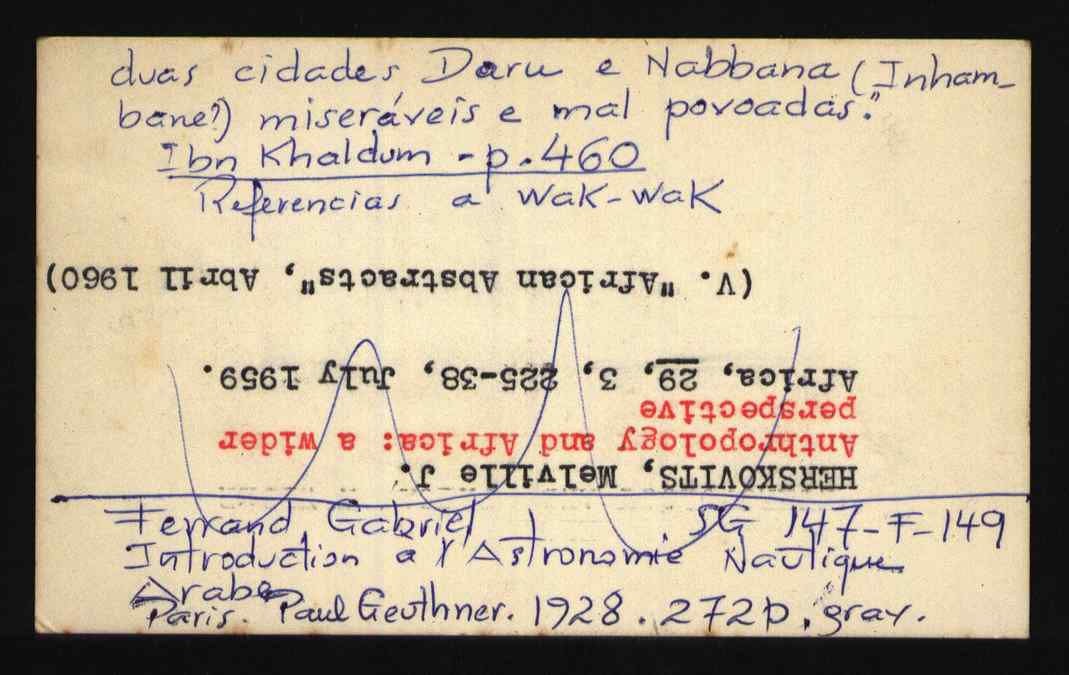 duas cidades, Daru e Nabbana (Inham-
bane?) miseráveis e mal povoadas."
Ibn Khaldum - p. 460
Referencias a Wak-Wak
HERSKOVITS, Melville J.
Anthropology and Africa: a wider
perspective
Africa, 29, 3, 225-38, July 1959.
(V. "African Abstracts", Abril 1960)
Ferrand, Gabriel SG 147-F-149
Introduction a l'Astronomie Nautique
Arabe
Paris. Paul Geuthner. 1928. 272p. grav.